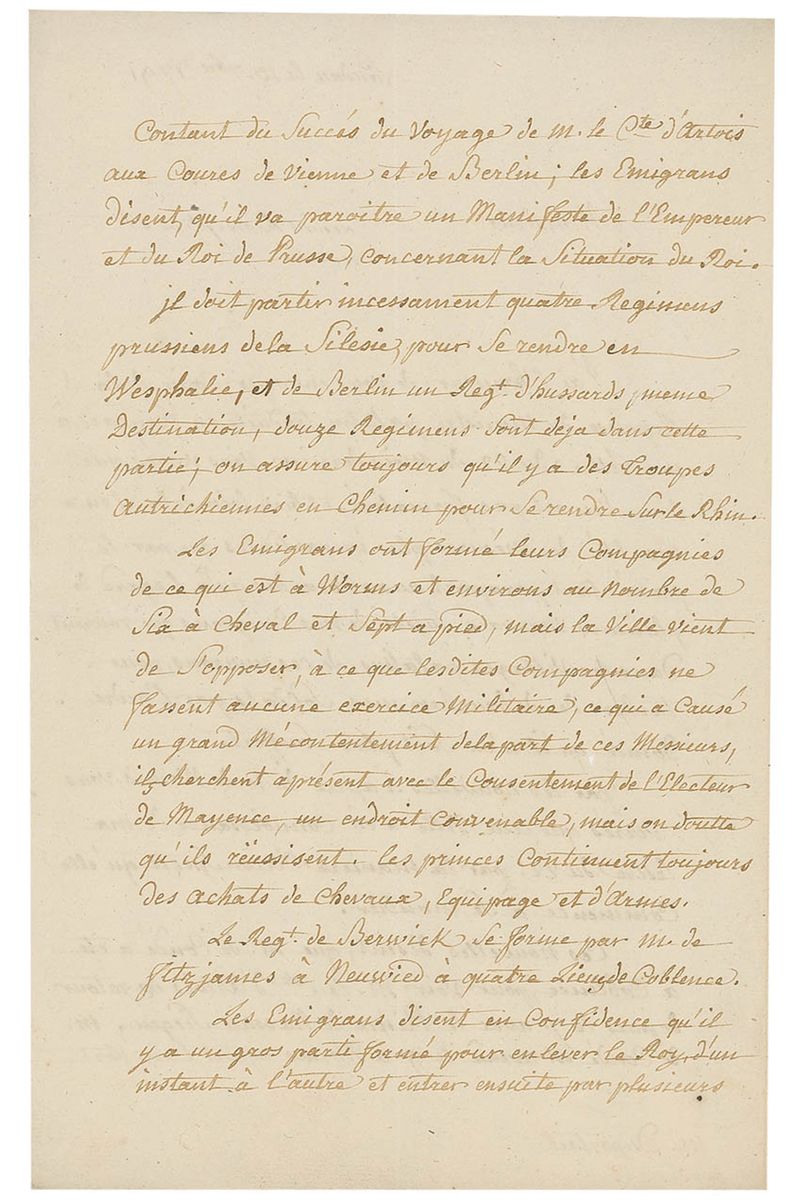 Contant du Succés du Voyage de M. le Cte d'Artois
aux Coures de Vienne et de Berlin; les Emigrans
disent, qu'il va paroitre un Manifeste de l'Empereur
et du Roi de Prusse, concernant la Situation du Roi.
jl doit partir incessament quatre Regimens
prussiens dela Silesie, pour Se rendre en
Wesphalie, et de Berlin un Regt. d'hussards, meme
Destination, douze Regimens Sont deja dans cette
partie; on assure toujours qu'il y a des Troupes
autrichiennes en Chemin pour Se rendre Sur le Rhin.
Les Emigrans ont formé leurs Compagnies
de ce qui est à Worms et environs au Nombre de
Six à Cheval et Sept a pied, mais la Ville vient
de S'opposer, à ce que lesdites Compagnies ne
fassent aucune exercice Militaire, ce qui a Causé
un grand Mécontentement dela part de ces Messieurs,
ils cherchent aprésent avec le Consentement de l'Electeur
de Mayence, un endroit Convenable, mais on doutte
qu'ils reüssisent. les princes Continuent toujours
des achats de Chevaux, Equipage et d'Armes.
Le Regt. de Berwick Se forme par M. de
fitzjames à Neuwied à quatre Lieus de Coblence.
Les Emigrans disent en Confidence qu'il
y a un gros parti formé pour enlever le Roy, d'un
instant à l'autre et entrer ensuite par plusieurs